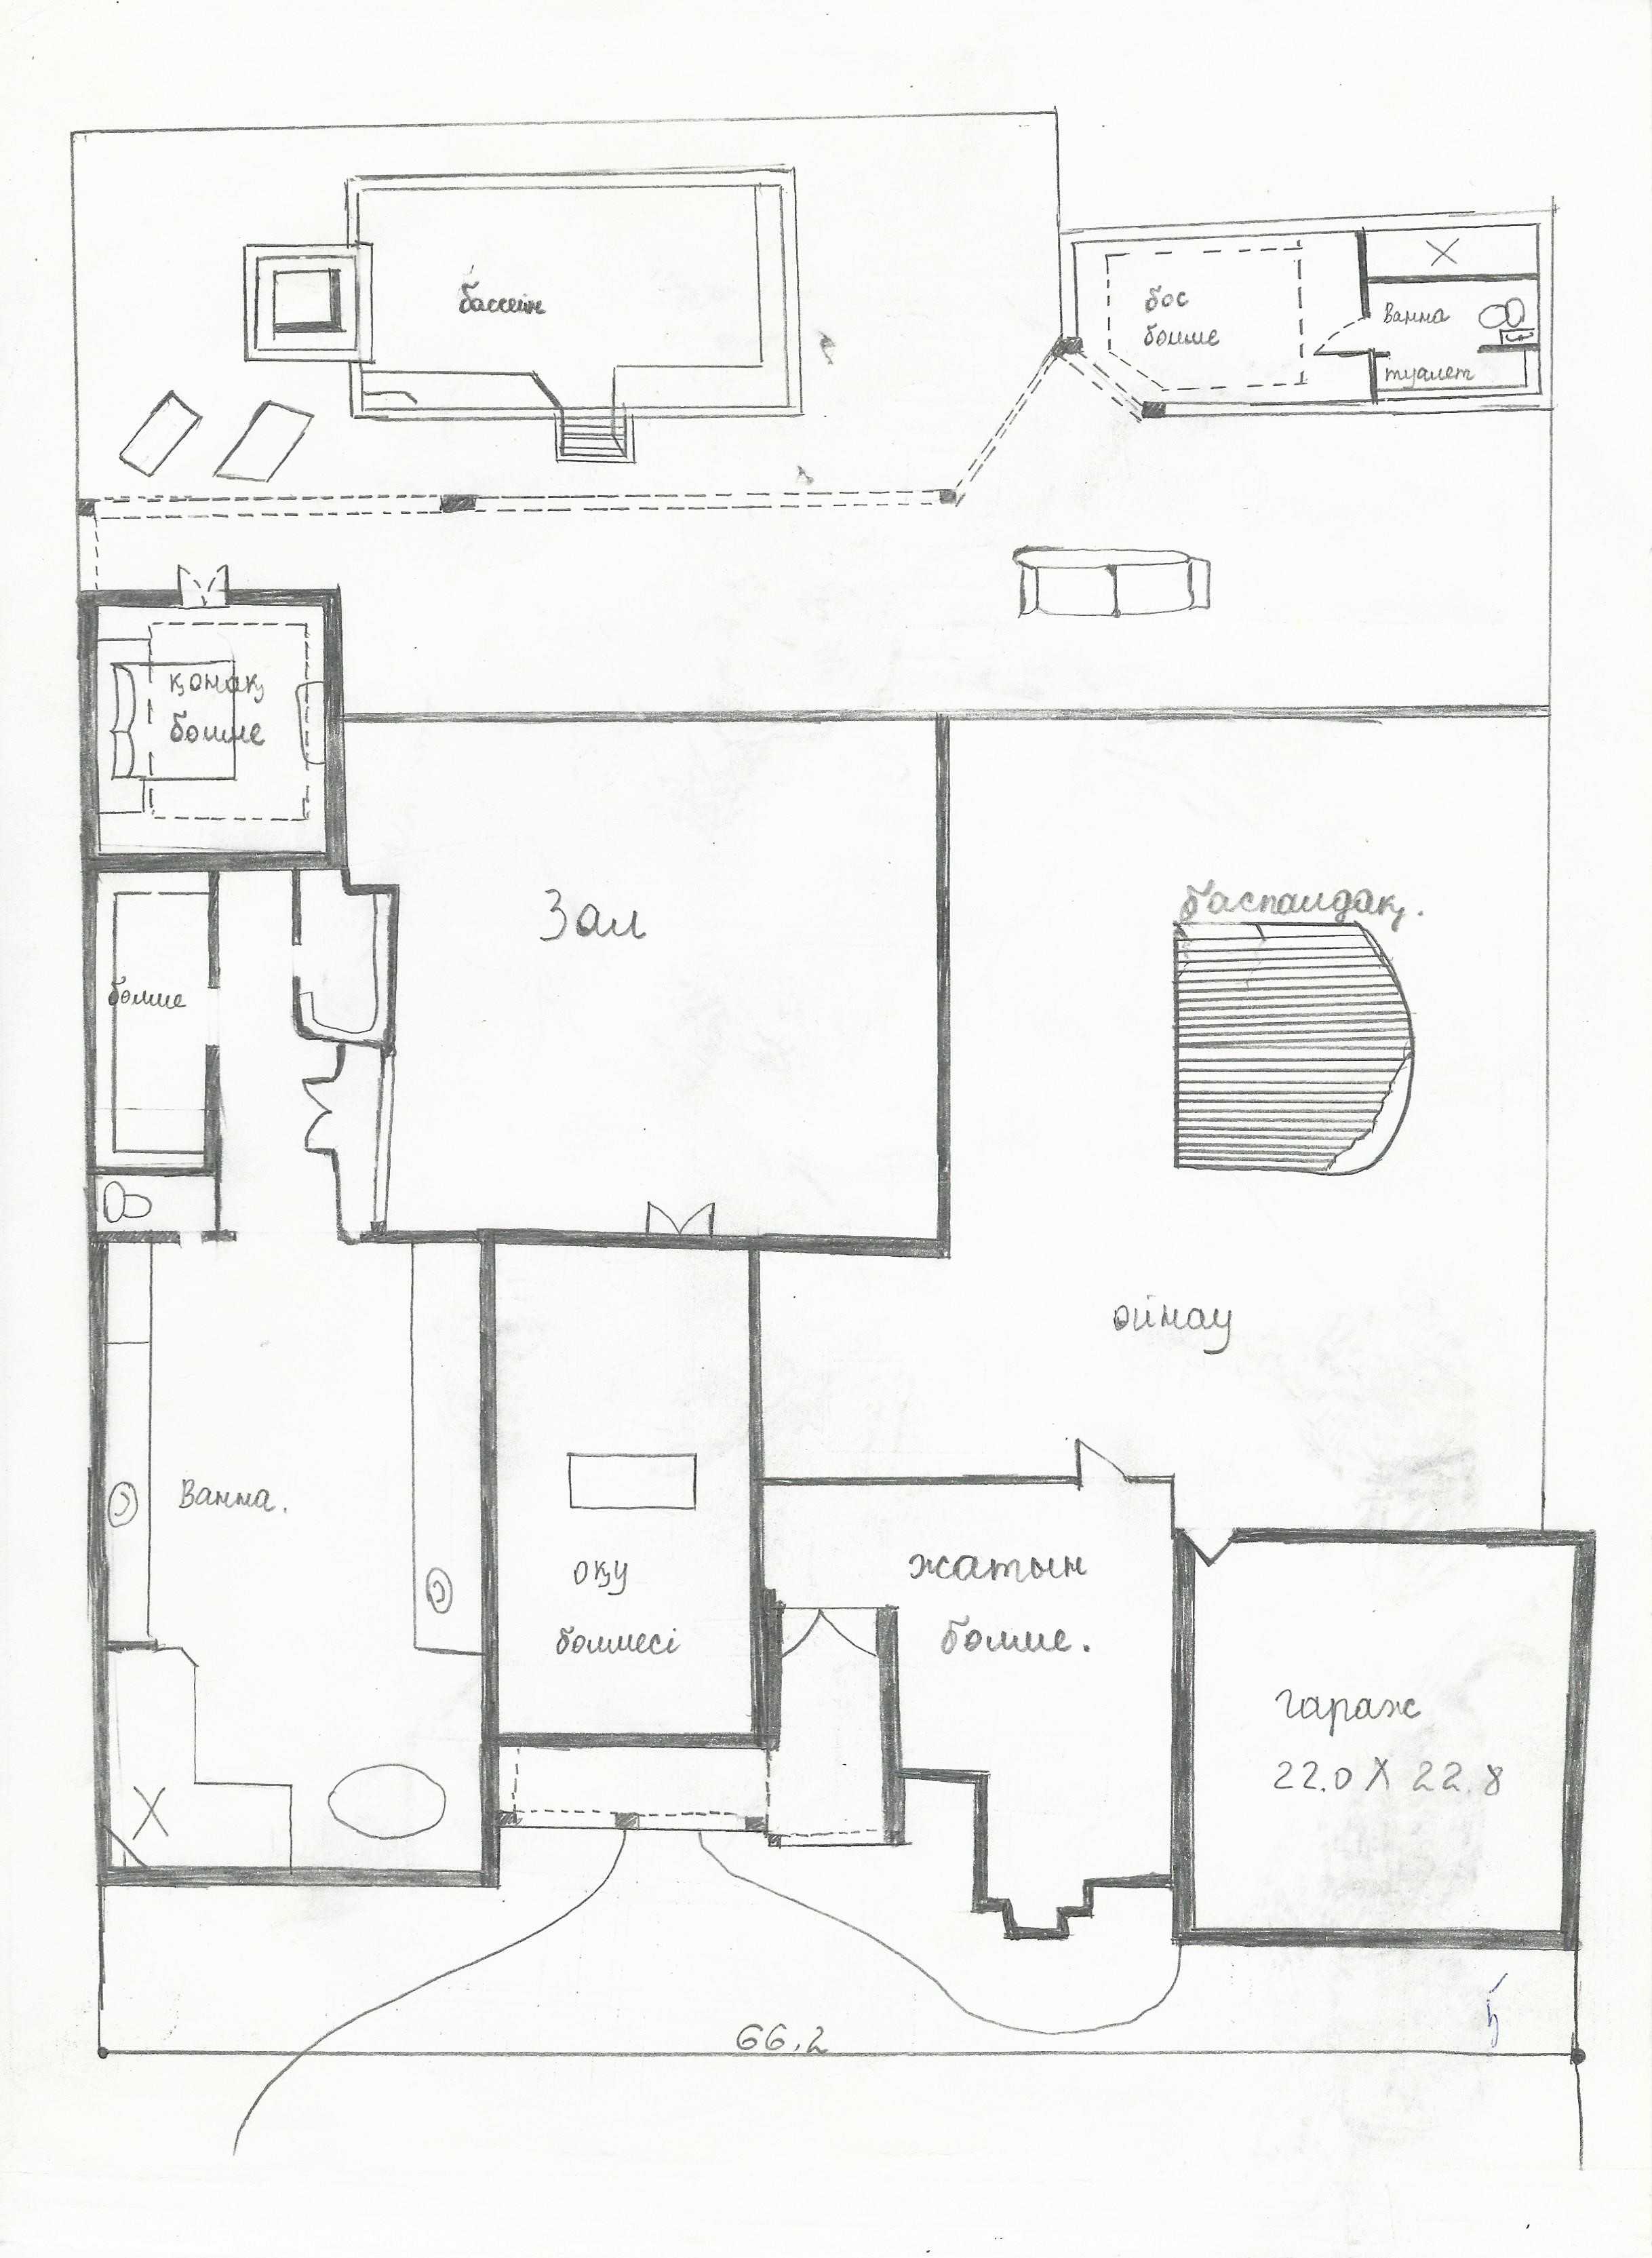 бассейн
бос
бөлме
Ванна
туалет
қонақ
бөлме
Зал
баспалдақ.
бөлме
ойнау
Ванна.
оқу
бөлмесі
жатын
бөлме.
гараж
22.0 X 22.8
66.2
5